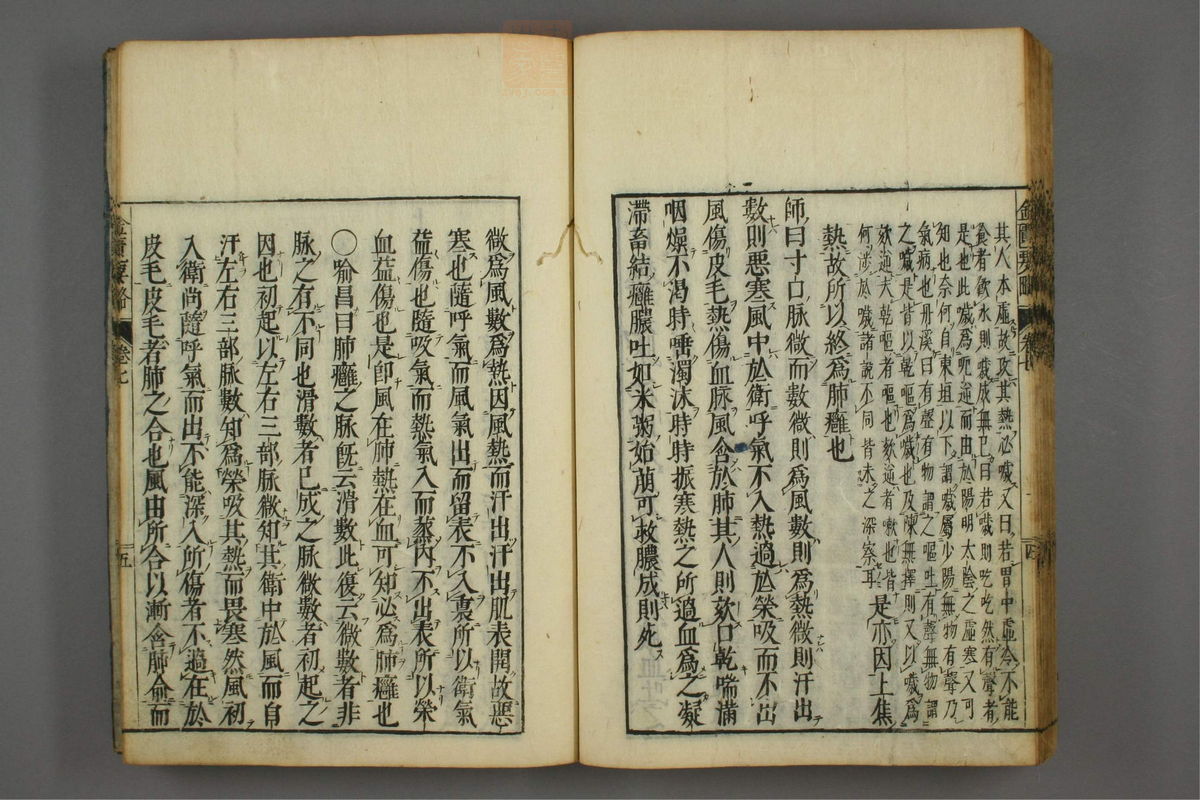 其人本虛故攻其熱必噦又曰若胃中虛冷不能
食者飲水則噦成無已曰若噦則吃吃然有聲者
是也此噦爲呃逆而由於陽明太陰之虛寒又可
知也奈何自東垣以下謂噦屬少陽無物有聲乃
氣病也丹溪曰有聲有物謂之嘔吐有聲無物謂
之噦是皆以乾嘔爲噦也及陳無擇則又以噦爲
欬逆夫乾嘔者嘔也欬逆者嗽也皆
何涉於噦諸說不同皆未之深察耳是亦因上焦
熱故所以終爲肺癰也
師曰寸口脉微而數微則爲風數則爲熱微則汗出
數則惡寒風中於衛呼氣不入熱過於榮吸而不出
風傷皮毛熱傷血脉風舍於肺其人則欬口乾喘滿
咽燥不渴時唾濁沫時時振寒熱之所過血爲之凝
滯畜結癰膿吐如米粥始萠可救膿成則死
金匱要略
卷七
四
微爲風數爲熱因風熱而汗出汗出肌表開故惡
寒也隨呼氣而風氣出而留表不入裏所以衛氣
益傷也隨吸氣而熱氣入而蒸內不出表所以榮
血益傷也是卽風在肺熱在血可知必爲肺癰也
○喻昌曰肺癰之脉旣云滑數此復云微數者非
脉之有不同也滑數者已成之脉微數者初起之
因也初起以左右三部脉微知其衛中於風而自
汗左右三部脉數知爲榮吸其熱而畏寒然風初
入衛尚隨呼氣而出不能深入所傷者不過在於
皮毛皮毛者肺之合也風由所合以漸舍肺俞而
金匱要略
卷七
五